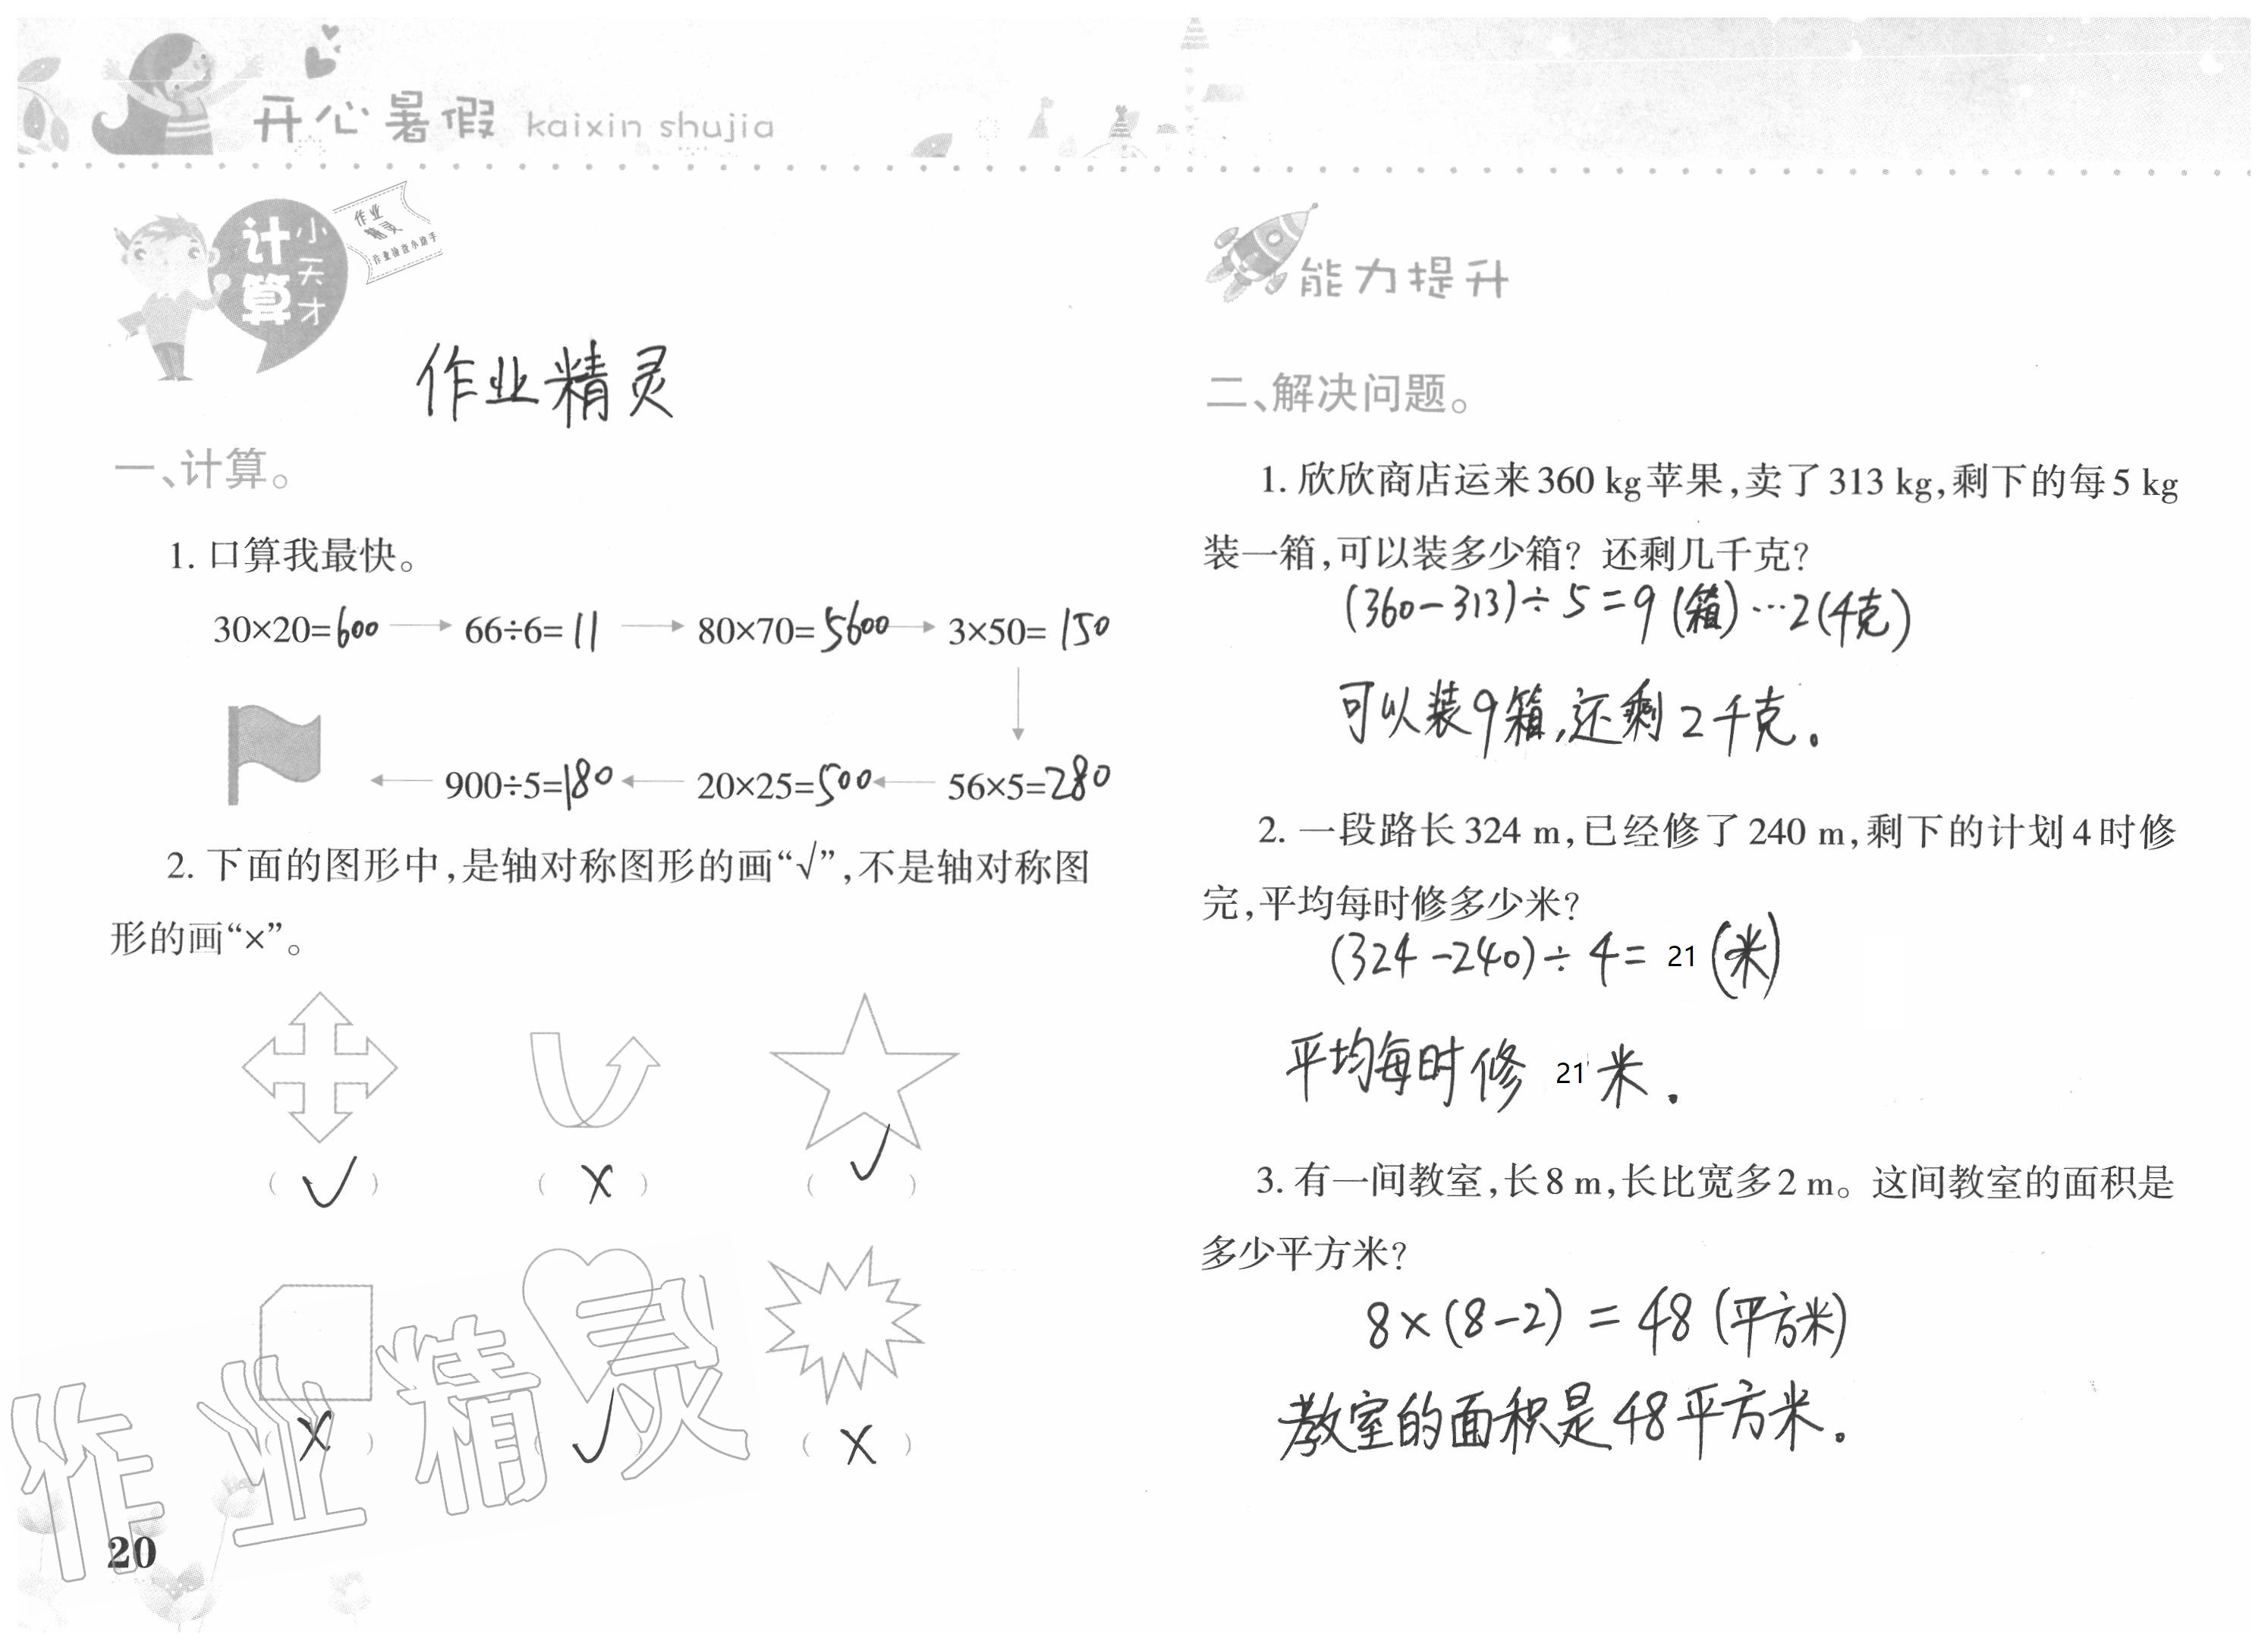 开心暑假 kaixin shujia
计算小天才
作业精灵
作业精灵
一、计算。
1. 口算我最快。
30×20=600 → 66÷6=11 → 80×70=5600 → 3×50=150
900÷5=180 ← 20×25=500 ← 56×5=280
2. 下面的图形中,是轴对称图形的画“√”,不是轴对称图
形的画“×”。
( ✓ ) ( × ) ( ✓ )
( × ) ( ✓ ) ( × )
作业精灵
20
能力提升
二、解决问题。
1. 欣欣商店运来360 kg苹果,卖了313 kg,剩下的每5 kg
装一箱,可以装多少箱? 还剩几千克?
(360-313)÷5=9(箱)…2(千克)
可以装9箱,还剩2千克。
2. 一段路长324 m,已经修了240 m,剩下的计划4时修
完,平均每时修多少米?
(324-240)÷4= 21 (米)
平均每时修 21 米.
3. 有一间教室,长8 m,长比宽多2 m。这间教室的面积是
多少平方米?
8×(8-2) = 48 (平方米)
教室的面积是48平方米.